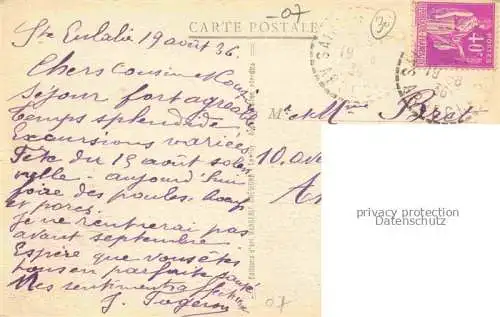 -07
CARTE POSTALE
Ste Eulalie 19 août 36.
Chers cousin et
séjour fort agréable
temps splendide
Excursions variées
Fête du 15 août solen
nelle - aujourd'hui
foire des poules, boeufs
et porcs.
Je ne rentrerai pas
avant septembre
Espère que vous êtes
tous en parfaite santé
Mes sentiments affectueux
J.
Mr et Mme
10. Ave
40c
POSTES
privacy protection
Datenschutz
07